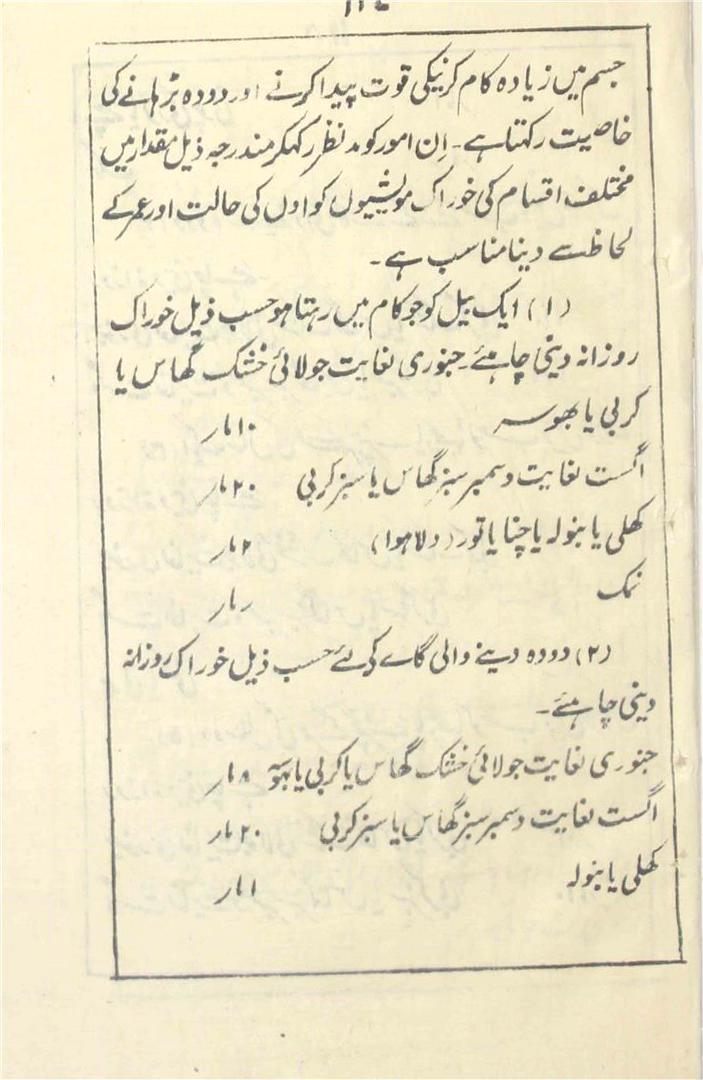 جسم میں زیادہ کام کرنیکی قوت پیدا کرنے اور دودہ بڑہانے کی
خاصیت رکہتا ہے۔ اِن امور کو مدنظر رکہکر مندرجہ ذیل مقدار میں
مختلف اقسام کی خوراک مویشیوں کو اون کی حالت اور عمر کے
لحاظ سے دینا مناسب ہے۔
(۱) ایک بیل کو جو کام میں رہتا ہو حسب ذیل خوراک
روزانہ دینی چاہئے۔ جنوری لغایت جولائی خشک گھاس یا
کربی یا بھوسہ ۱۰ مار
اگست لغایت دسمبر سبز گھاس یا سبز کربی ۲۰ مار
کھلی یا بنولہ یا چنا یا تور (دلا ہوا) ۲ مار
نمک
(۲) دودہ دینے والی گاے کے لئے حسب ذیل خوراک روزانہ
دینی چاہئے۔
جنوری لغایت جولائی خشک گھاس یا کربی یا بہوسہ ۸ مار
اگست لغایت دسمبر سبز گھاس یا سبز کربی ۲۰ مار
کھلی یا بنولہ ۱ مار